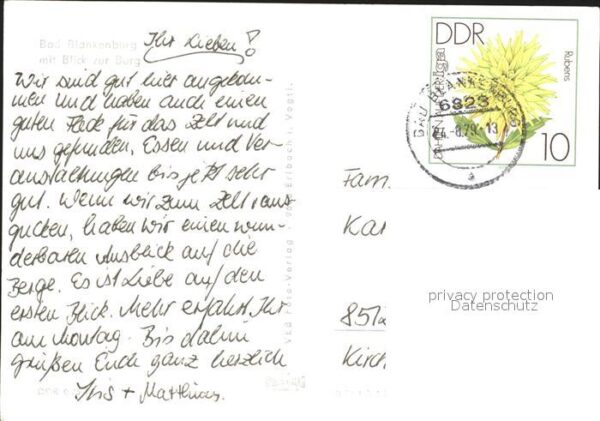 Bad Blankenburg
mit Blick zur Burg
Ihr Lieben!
Wir sind gut hier angekom-
men und haben auch einen
guten Fleck für das Zelt und
uns gefunden. Essen und Ver-
anstaltungen bis jetzt sehr
gut. Wenn wir zum Zelt raus
gucken, haben wir einen wun-
derbaren Ausblick auf die
Berge. Es ist Liebe auf den
ersten Blick. Mehr erfahrt Ihr
am Montag. Bis dahin
grüßen Euch ganz herzlich
Iris + Matthias.
VEB Foto-Verlag Erlbach i. Vogtl.
DDR
Rubens
10
BAD BLANKENBURG
6823
-8.79.-13
a
Fam
Kar
Kirc
privacy protection
Datenschutz